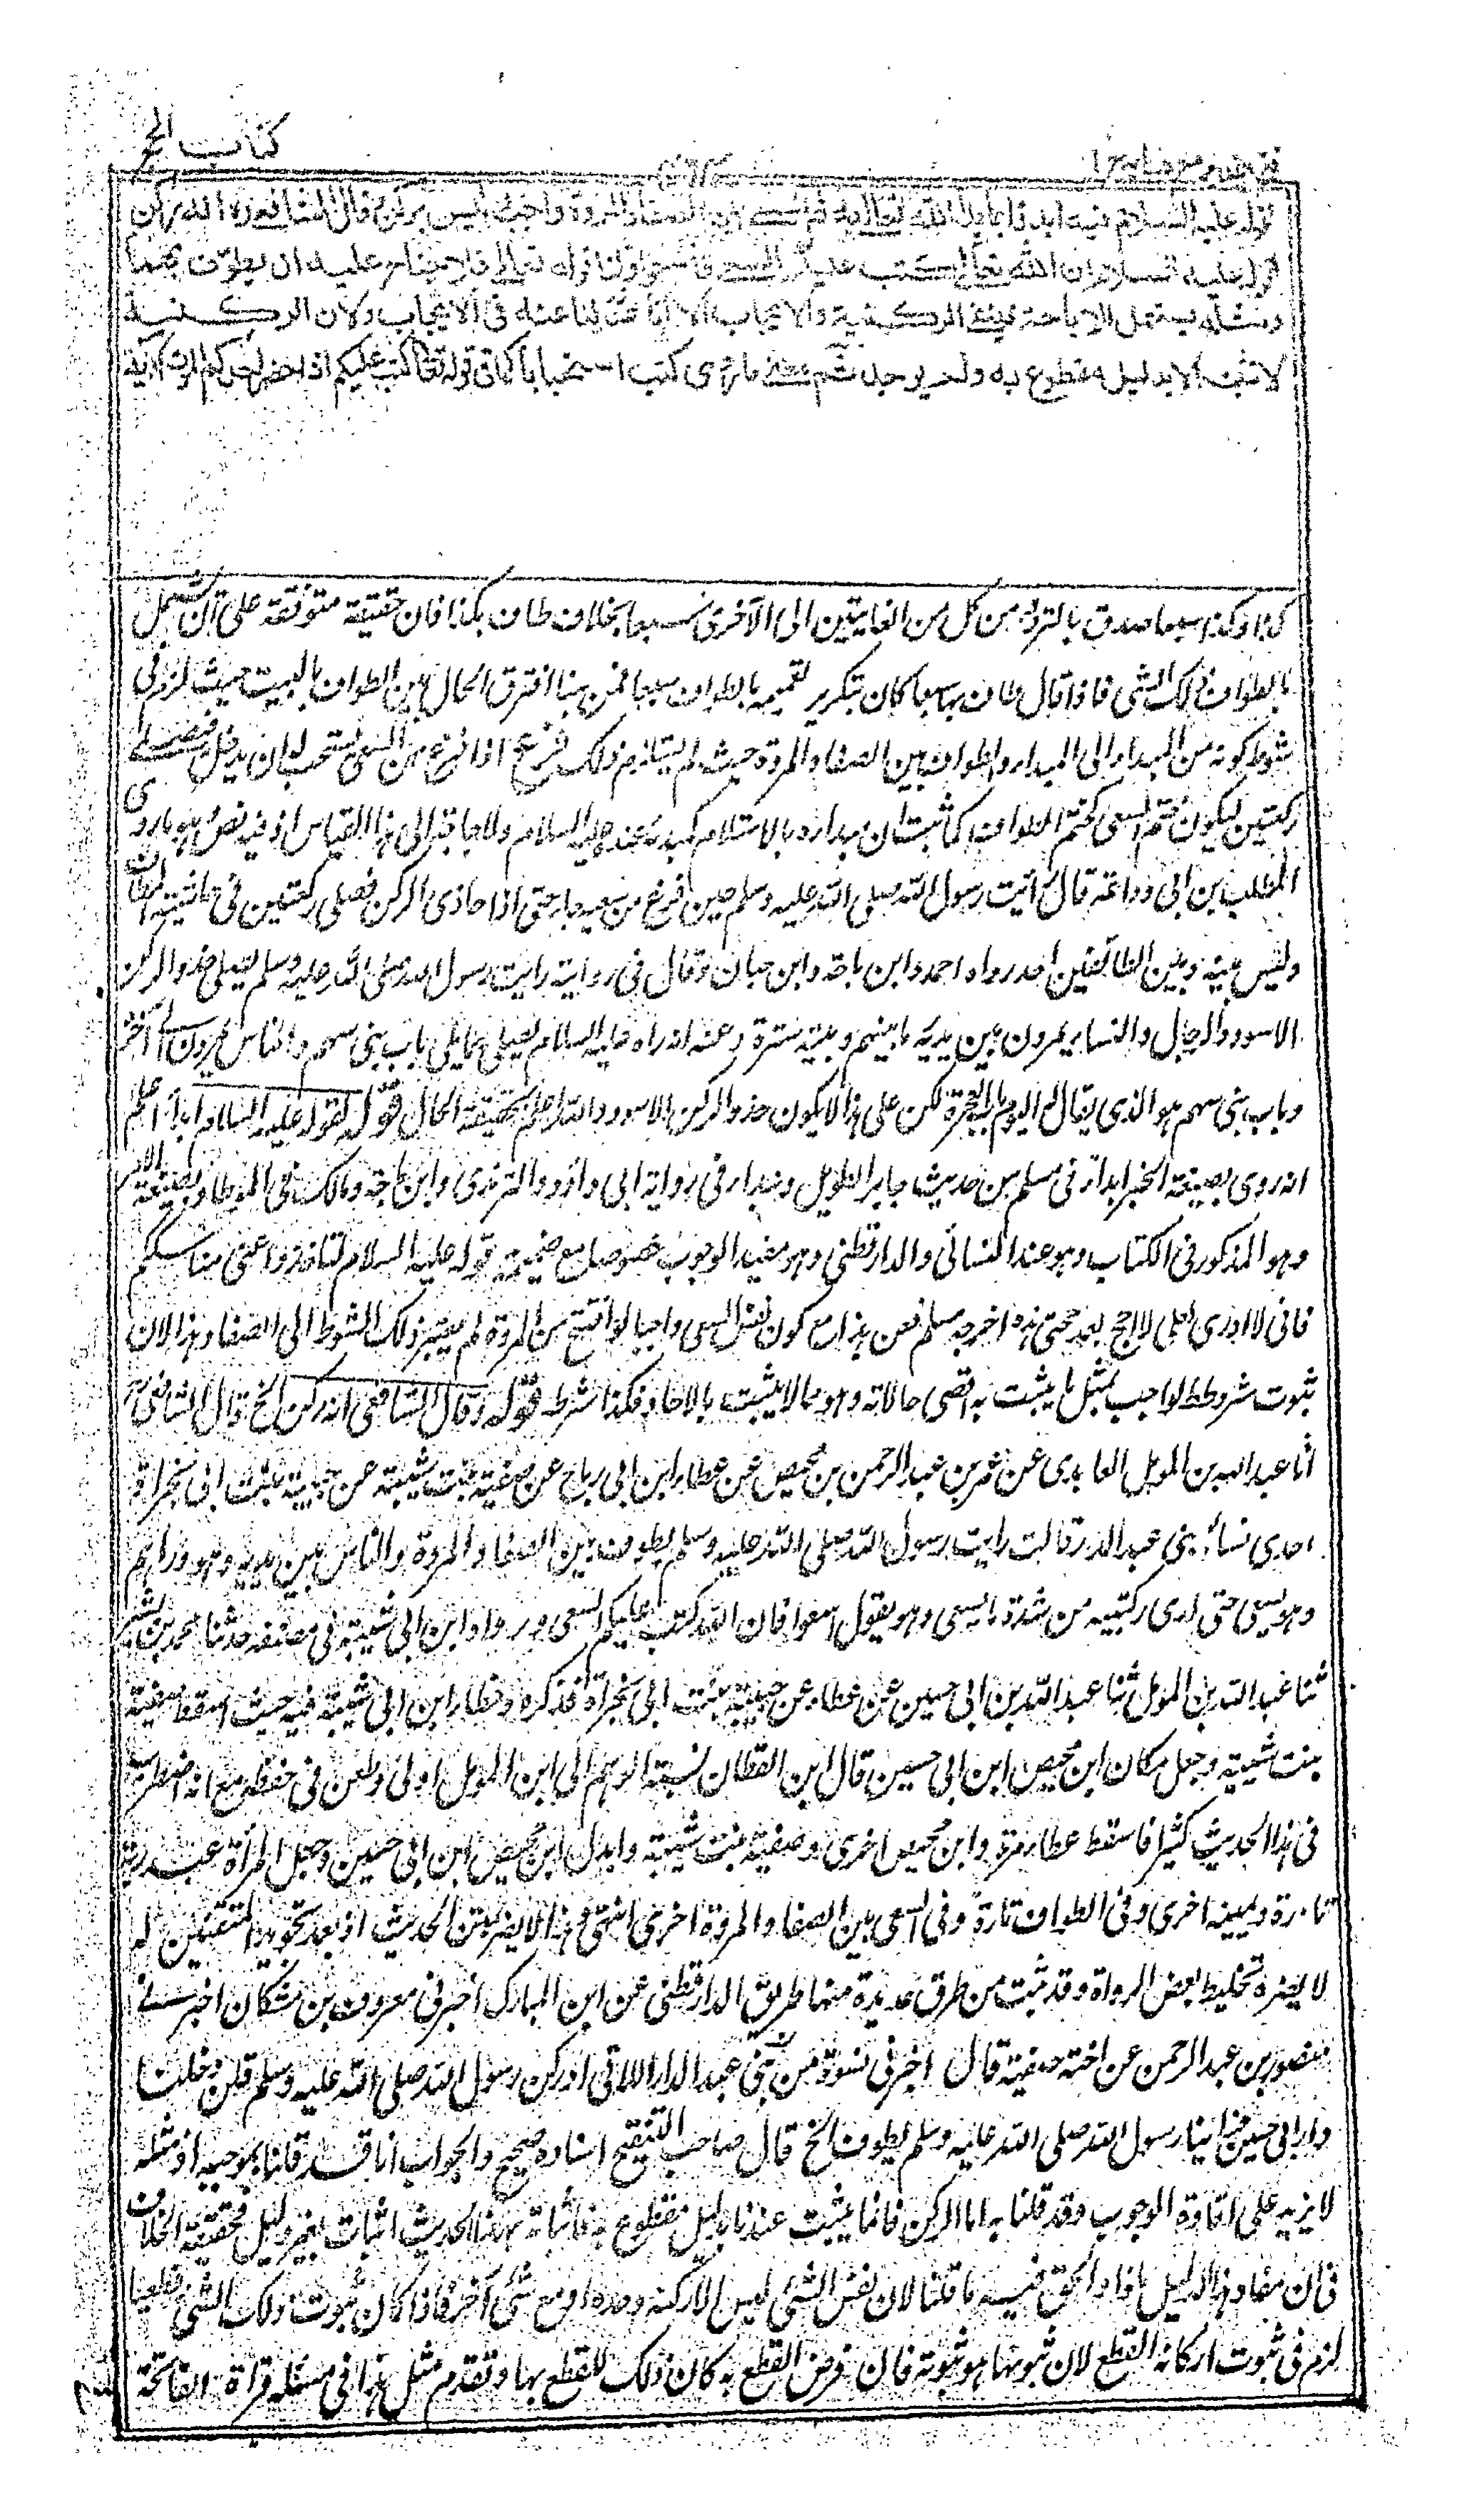 كتاب الحج
لقوله عليه السلام فيه ابدأوا بما بدأ الله تعالى به ثم السعي بين الصفا والمروة واجب وليس بركن وقال الشافعي رح انه ركن
لقوله عليه السلام ان الله تعالى كتب عليكم السعي فاسعوا ولنا قوله تعالى فلا جناح عليه ان يطوف بهما
ومثله يستعمل للاباحة فينفي الركنية والايجاب الا انا عدلنا عنه في الايجاب ولان الركنية
لا تثبت الا بدليل مقطوع به ولم يوجد ثم معنى ما روى كتب استحبابا كما في قوله تعالى كتب عليكم اذا حضر احدكم الموت الآية
كذا وكذا سبعا صدق بالتردد من كل من الغايتين الى الآخرى سبعا بخلاف طاف بكذا فان حقيقته متوقفة على ان يشمل
بالطواف ذلك الشى فاذا قال طاف بها سبعا كان بتكرير تعميمه بالطواف سبعا فمن هنا افترق الحال بين الطواف بالبيت حيث لزم في
شوط كونه من المبدأ الى المبدأ والطواف بين الصفا والمروة حيث لم يستلزم ذلك فرع اذا فرغ من السعي يستحب له ان يدخل فيصلي
ركعتين ليكون ختم السعي كختم الطواف كما ثبت ان مبدأه بالاستلام كمبدئه عنه عليه السلام ولا حاجة الى هذا القياس اذ فيه نص وهو ما روى
المطلب بن ابى وداعة قال رأيت رسول الله صلى الله عليه وسلم حين فرغ من سعيه جاء حتى اذا حاذى الركن فصلى ركعتين في حاشية المطاف
وليس بينه وبين الطائفين احد رواه احمد وابن ماجة وابن حبان وقال في رواية رايت رسول الله صلى الله عليه وسلم يصلي حذو الركن
الاسود والرجال والنساء يمرون بين يديه ما بينهم وبينه سترة وعنه انه رآه عليه السلام يصلي مما يلي باب بني سهم والناس يمرون الى آخره
وباب بني سهم هو الذي يقال له اليوم باب العمرة لكن على هذا لا يكون حذو الركن الاسود والله اعلم بحقيقة الحال قوله لقوله عليه السلام ابدأ اعلم
انه روى بصيغة الخبر ابدأ في مسلم من حديث جابر الطويل ونبدأ في رواية ابى داؤد والترمذى وابن ماجة ومالك في الموطا وبصيغة الامر
وهو المذكور في الكتاب وهو عند النسائي والدارقطنى وهو مفيد الوجوب خصوصا مع ضميمة قوله عليه السلام لتأخذوا عنى مناسككم
فانى لا ادرى لعلى لا احج بعد حجتى هذه اخرجه مسلم فعن هذا مع كون نفس السعي واجبا لو افتتح من المروة لم يعتبر ذلك الشوط الى الصفا وهذا لان
ثبوت شرط الواجب بمثل ما يثبت به اقصى حالاته وهو مما لا يثبت بالآحاد فكذا شرطه قوله وقال الشافعى انه ركن الخ قال الشافعى رح
أنا عبد الله بن المؤمل العابدى عن عمر بن عبد الرحمن بن محيصن عن عطاء ابن ابى رباح عن صفية بنت شيبة عن حبيبة بنت ابى تجراة
احدى نساء بني عبد الدار قالت رايت رسول الله صلى الله عليه وسلم يطوف بين الصفا والمروة والناس بين يديه وهو وراءهم
وهو يسعى حتى ارى ركبتيه من شدة ما يسعى وهو يقول اسعوا فان الله كتب عليكم السعى ورواه ابن ابى شيبة في مصنفه حدثنا محمد بن بشر
ثنا عبد الله بن المؤمل ثنا عبد الله بن ابى حسين عن عطاء عن حبيبة بنت ابى تجراة فذكره وخطا ابن ابى شيبة فيه حيث اسقط صفية
بنت شيبة وجعل مكان ابن محيصن ابن ابى حسين قال ابن القطان نسبة الوهم الى ابن المؤمل اولى وطعن في حفظه مع انه اضطرب
في هذا الحديث كثيرا فاسقط عطاء مرة وابن محيصن اخرى وصفية بنت شيبة وابدل ابن محيصن ابن ابى حسين وجعل المرأة عبدرية
تارة ويمينة اخرى وفي الطواف تارة وفي السعى بين الصفا والمروة اخرى انتهى وهذا لا يضر بمتن الحديث اذ بعد تجويد المتقنين له
لا يضره تخليط بعض الرواة وقد ثبت من طرق عديدة منها طريق الدارقطنى عن ابن المبارك اخبرنى معروف بن مشكان اخبرنى
منصور بن عبد الرحمن عن اخته صفية قال اخبرنى نسوة من بنى عبد الدار اللاتى ادركن رسول الله صلى الله عليه وسلم قلن دخلنا
دار ابى حسين فرأينا رسول الله صلى الله عليه وسلم يطوف الخ قال صاحب التنقيح اسناده صحيح والجواب انا قد قلنا بموجبه اذ مثله
لا يزيد على افادة الوجوب وقد قلنا به اما الركن فانما يثبت عندنا بدليل مقطوع به فاثباته بهذا الحديث اثبات بغير دليل فحقيقة الخلاف
في ان مفاد هذا الدليل ماذا والحق فيه ما قلنا لان نفس الشئ ليس الا ركنه وحده او مع شئ آخر فاذا كان ثبوت ذلك الشئ قطعيا
لزم في ثبوت اركانه القطع لان ثبوتها هو ثبوته فان فرض القطع به كان ذلك للقطع بها وتقدم مثل هذا في مسئلة قراة الفاتحة